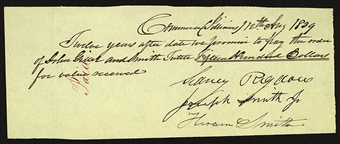 Commerce Illinois 12th Aug 1839
Twelve years after date we promise to pay the order
of John Gillet and Smith Tuttle Fifteen Hundred Dollars
for value received
Sidney Rigdon
Joseph Smith Jr
Hiram Smith